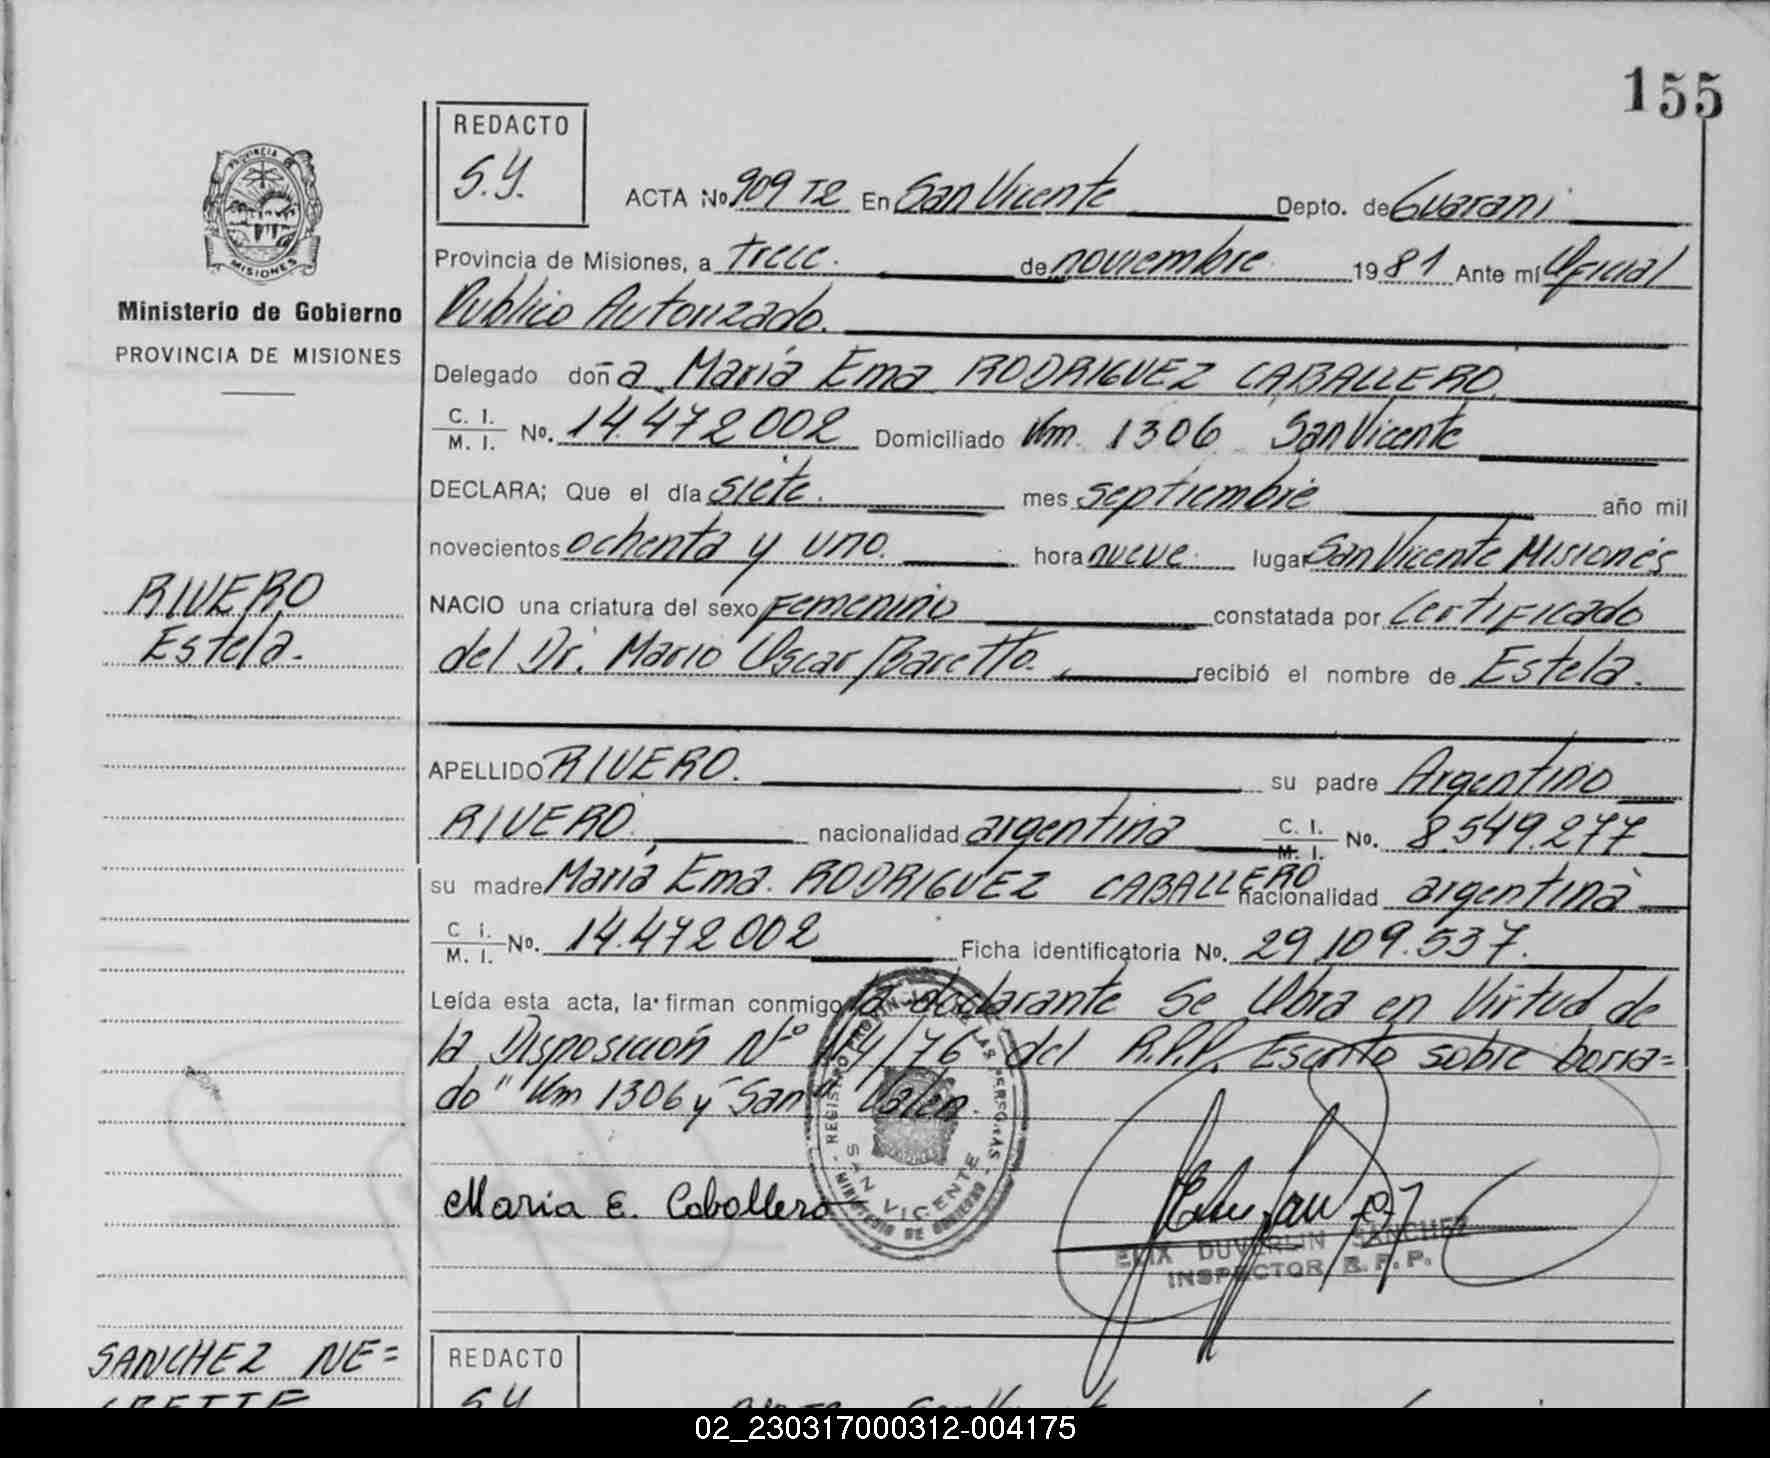 155
REDACTO
S.Y.
PROVINCIA DE
MISIONES
Ministerio de Gobierno
PROVINCIA DE MISIONES
ACTA No 909 T2 En San Vicente Depto. de Guarani
Provincia de Misiones, a trece. de noviembre. 1981 Ante mí Oficial
Publico Autorizado.
Delegado doña María Ema RODRIGUEZ CABALLERO.
C. I. / M. I. No. 14.472002 Domiciliado Km. 1306 San Vicente
DECLARA; Que el día siete. mes septiembre año mil
novecientos ochenta y uno. hora nueve. lugar San Vicente Misiones
RIVERO
Estela.
NACIO una criatura del sexo femenino constatada por Certificado
del Dr. Mario Oscar Baretto. recibió el nombre de Estela.
APELLIDO RIVERO. su padre Argentino
RIVERO, nacionalidad argentina C. I. / M. I. No. 8.549.277
su madre María Ema. RODRIGUEZ CABALLERO nacionalidad argentina
C. I. / M. I. No. 14.472002 Ficha identificatoria No. 29.109.537.
Leída esta acta, la firman conmigo la declarante Se Obra en Virtud de
la Disposición Nº 14/76 del R.P.P. Escrito sobre borra=
do "Km 1306 y San" Valen.
REGISTRO PROVINCIAL DE LAS PERSONAS
SAN VICENTE
MINISTERIO DE GOBIERNO
Maria E. Caballero
ELIX DUVERLIN SANCHEZ
INSPECTOR R.P.P.
SANCHEZ NE=
REDACTO
S.Y.
02_230317000312-004175